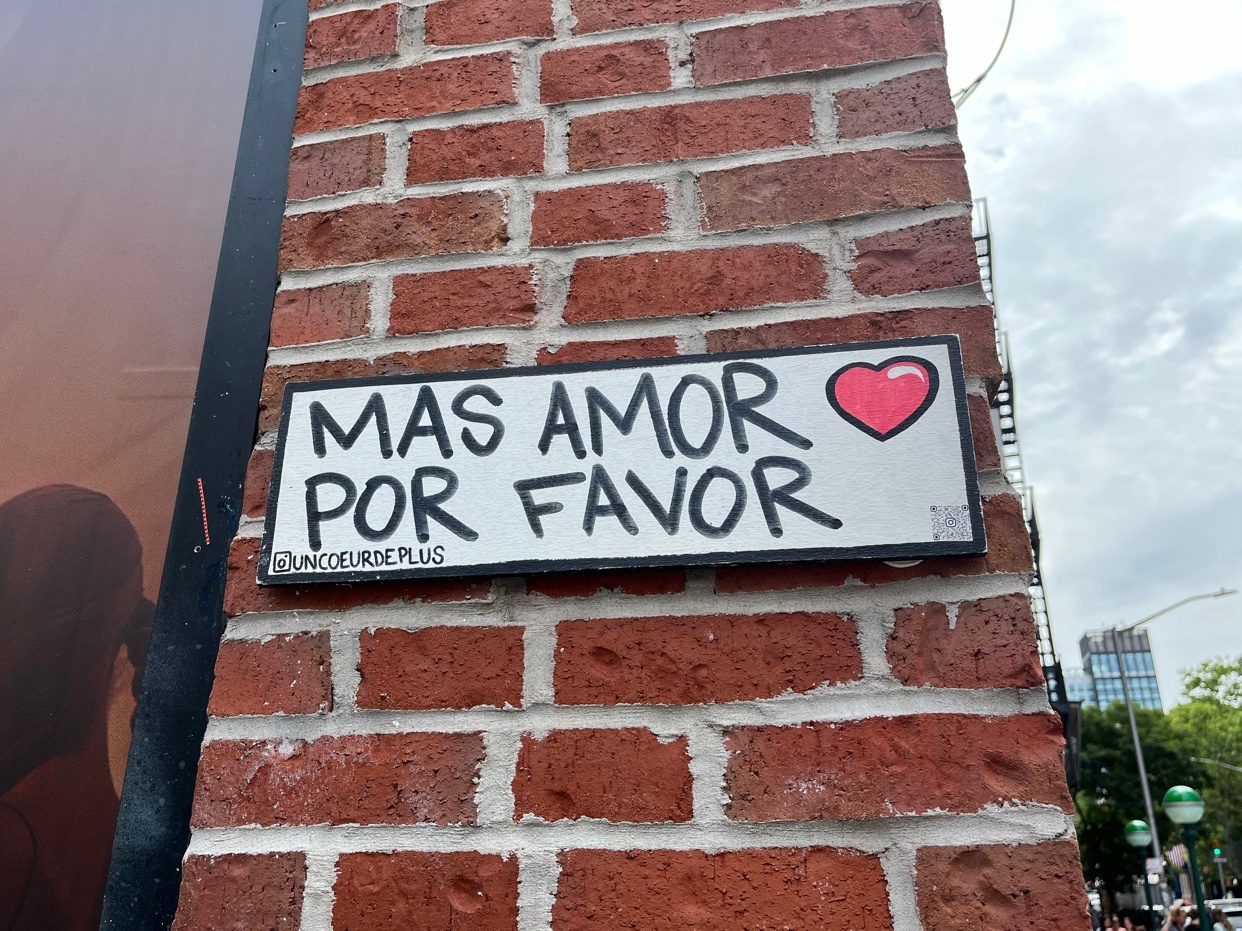 MAS AMOR
POR FAVOR
UNCOEURDEPLUS